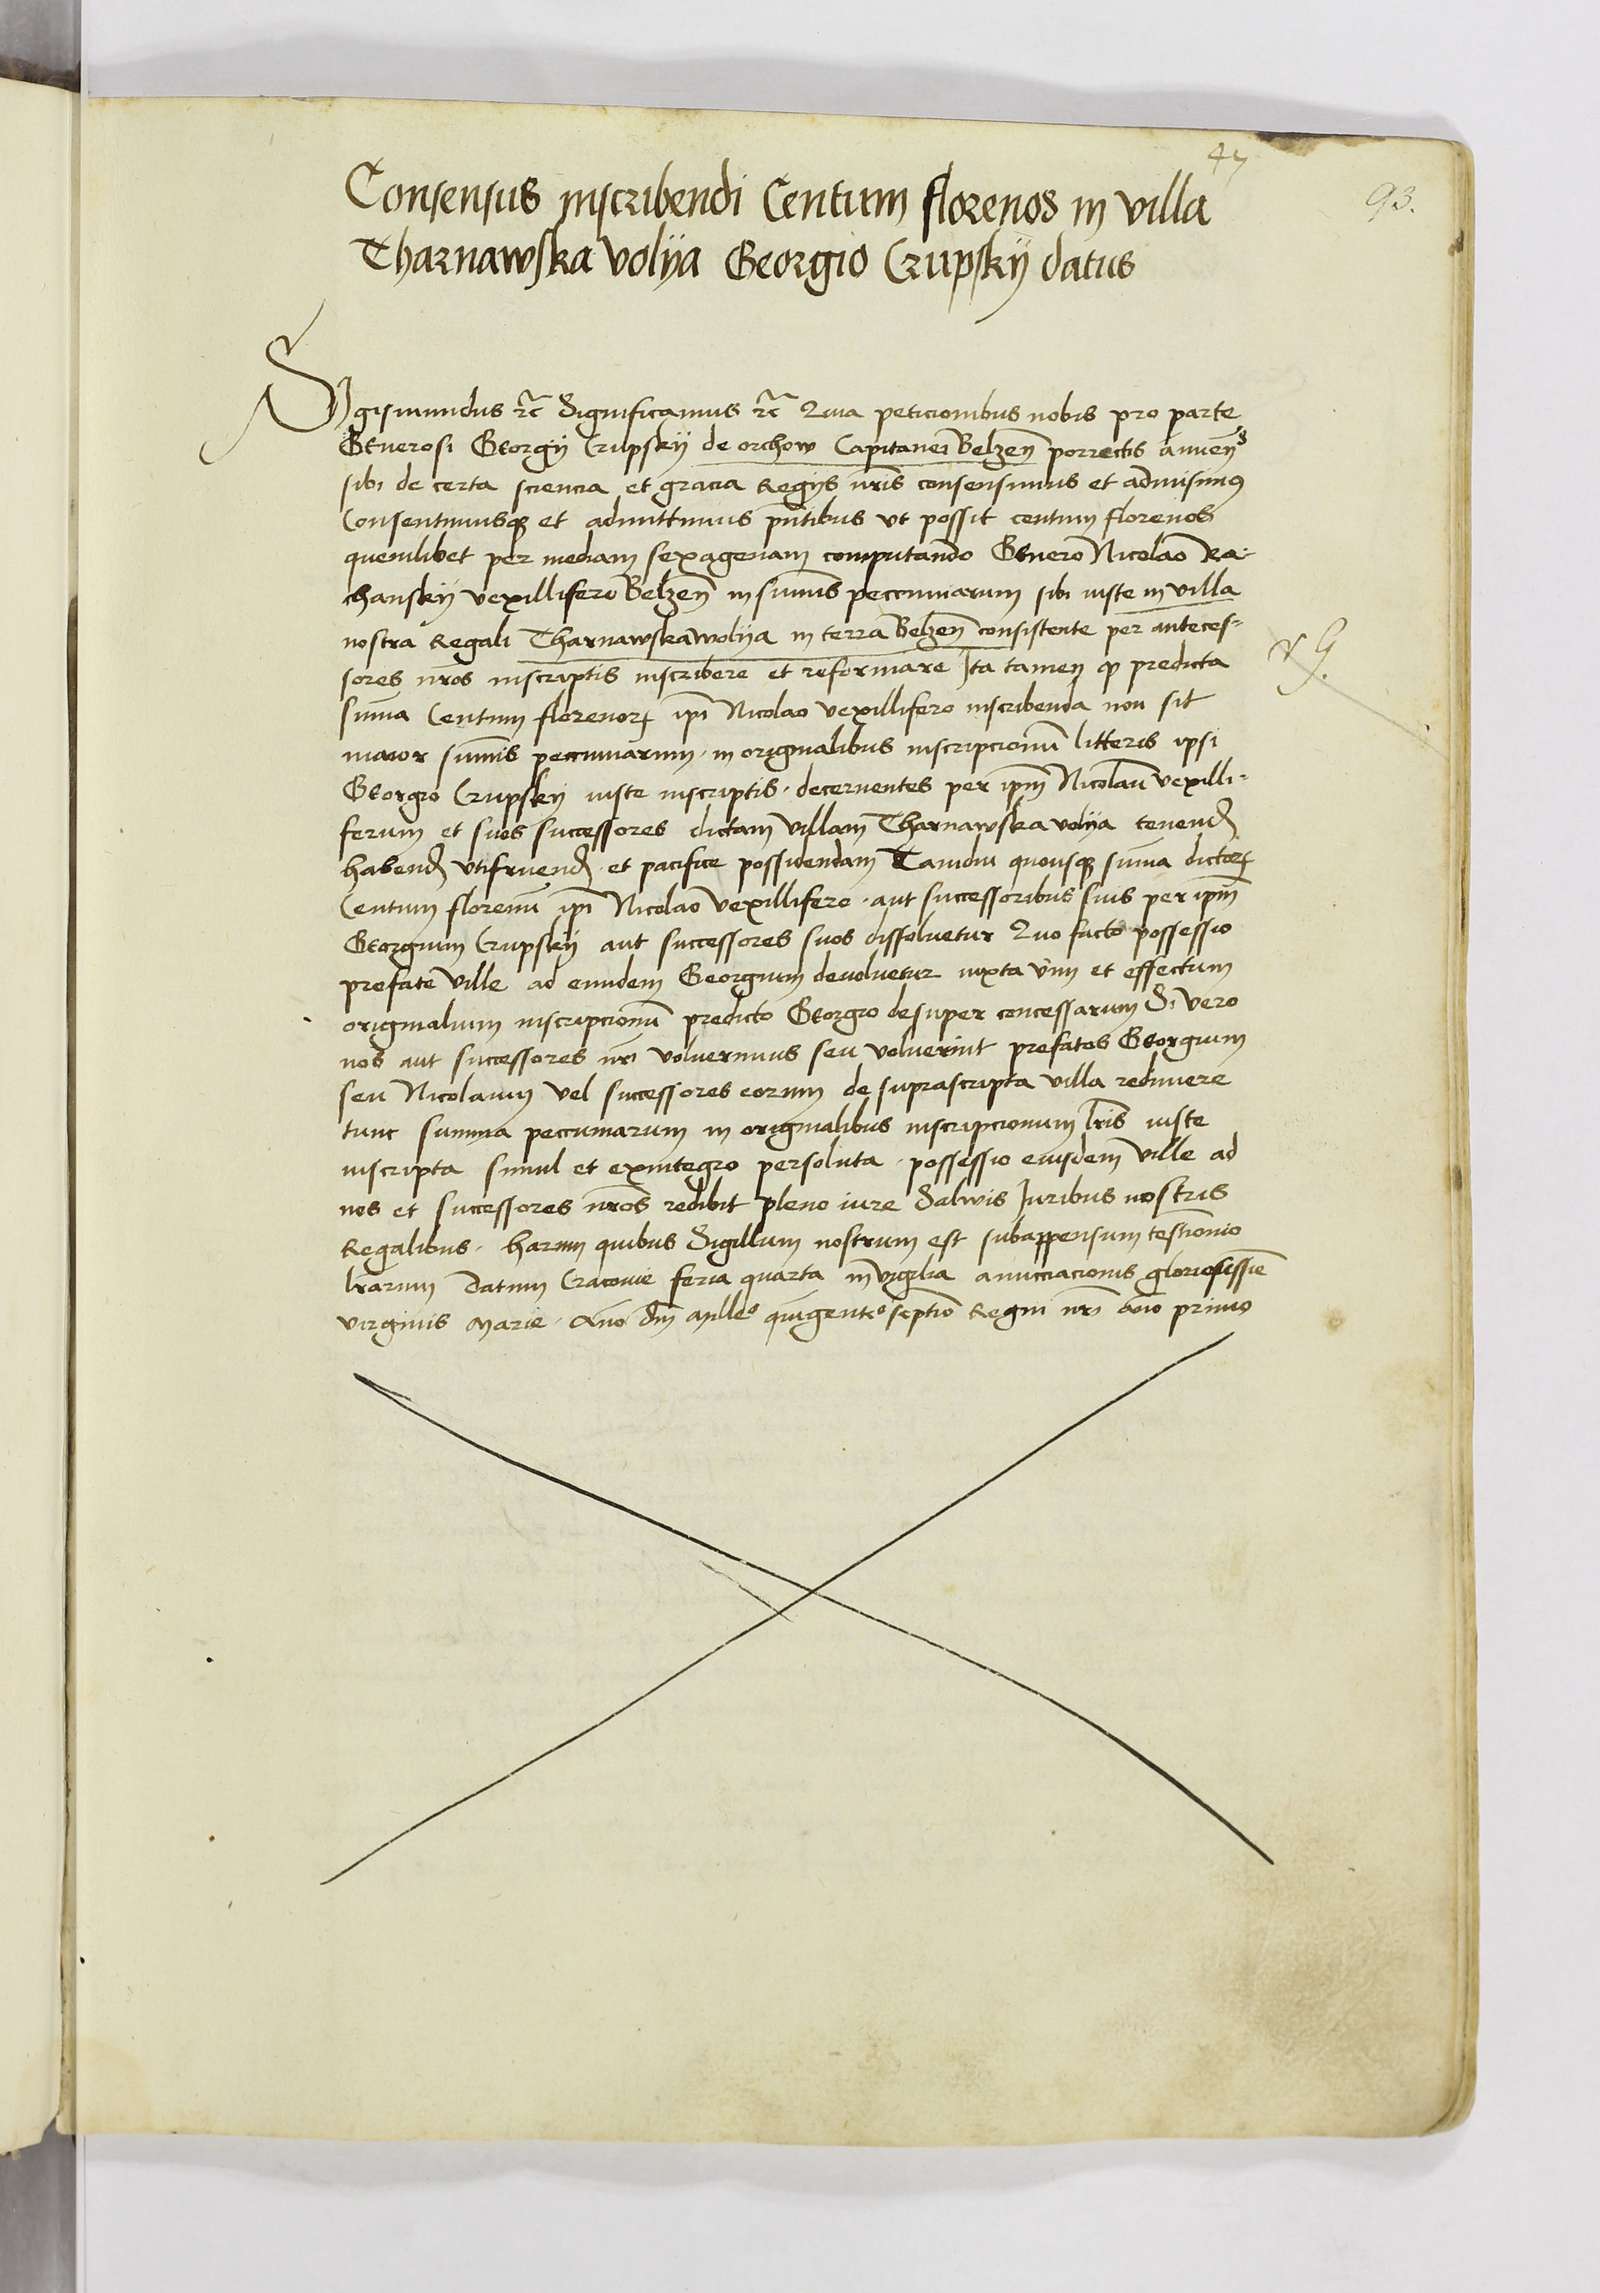 47
93.
Consensus inscribendi Centum florenos in villa
Tharnawska volya Georgio Crupskÿ datus
Sigismundus ꝛc̄ Significamus ꝛc̄ Quia peticionibus nobis pro parte
Generosi Georgÿ Crupskÿ de orchow Capitanei Belzen̄ porrectis annuen̄
sibi de certa sciencia et gracia Regÿs nr̄is consensimus et admisimꝰ
Consentimusqꝫ et admittimus pn̄tibus vt possit centum florenos
quemlibet per mediam sexagenam computando Genero Nicolao Ra-
chanskÿ vexillifero Belzen̄ in sum̄is peccuniarum sibi iuste in villa
nostra Regali Tharnawskawolÿa in terra Belzen̄ consistente per anteces-
sores nr̄os inscriptis inscribere et reformare Ita tamen ꝙ predicta
sum̄a Centum florenoꝝ ip̄i Nicolao vexillifero inscribenda non sit
maior sum̄is peccuniarum in originalibus inscripcionū litteris ipsi
Georgio Crupskÿ iuste inscriptis decernentes per ip̄m Nicolaū vexilli-
ferum et suos successores dictam villam Tharnawska volÿa tenend
habend vtifruend et pacifice possidendam Tamdiu quousqꝫ sum̄a dictoꝝ
Centum florenū ip̄i Nicolao vexillifero aut successoribus suis per ip̄m
Georgium Crupskÿ aut successores suos dissoluetur Quo facto possessio
prefate ville ad eundem Georgium deuoluetur iuxta vim et effectum
originalium inscripcionū predicto Georgio desuper concessarum Si vero
nos aut successores nr̄i voluerimus seu voluerint prefatos Georgium
seu Nicolaum vel successores eorum de suprascripta villa redimere
tunc summa peccuniarum in originalibus inscripcionum lr̄is iuste
inscripta simul et exintegro persoluta possessio eiusdem ville ad
nos et successores nr̄os redibit pleno iure Salwis Iuribus nostris
Regalibus harum quibus Sigillum nostrum est subappensum testīonio
lr̄arum Datum Cracouie feria quarta in vigilia anuncciacionis gloriosissīe
virginis Marie An̄o dn̄i Milleº quigenteº septīo Regni nr̄i an̄o primo